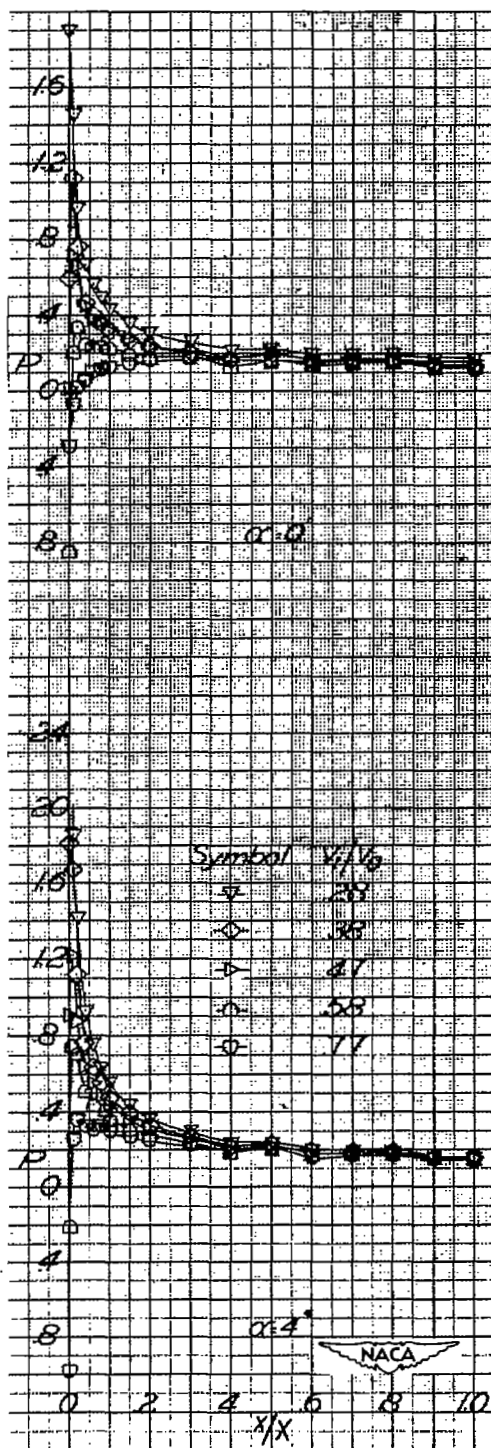 1.6
1.2
.8
.4
P
0
.4
.8
α=0
2.4
2.0
1.6
1.2
.8
.4
P
0
.4
.8
Symbol Vi/V0
.29
.38
.47
.58
.77
α=4°
NACA
0 .2 .4 .5 .6 .7 .8 1.0
x/X